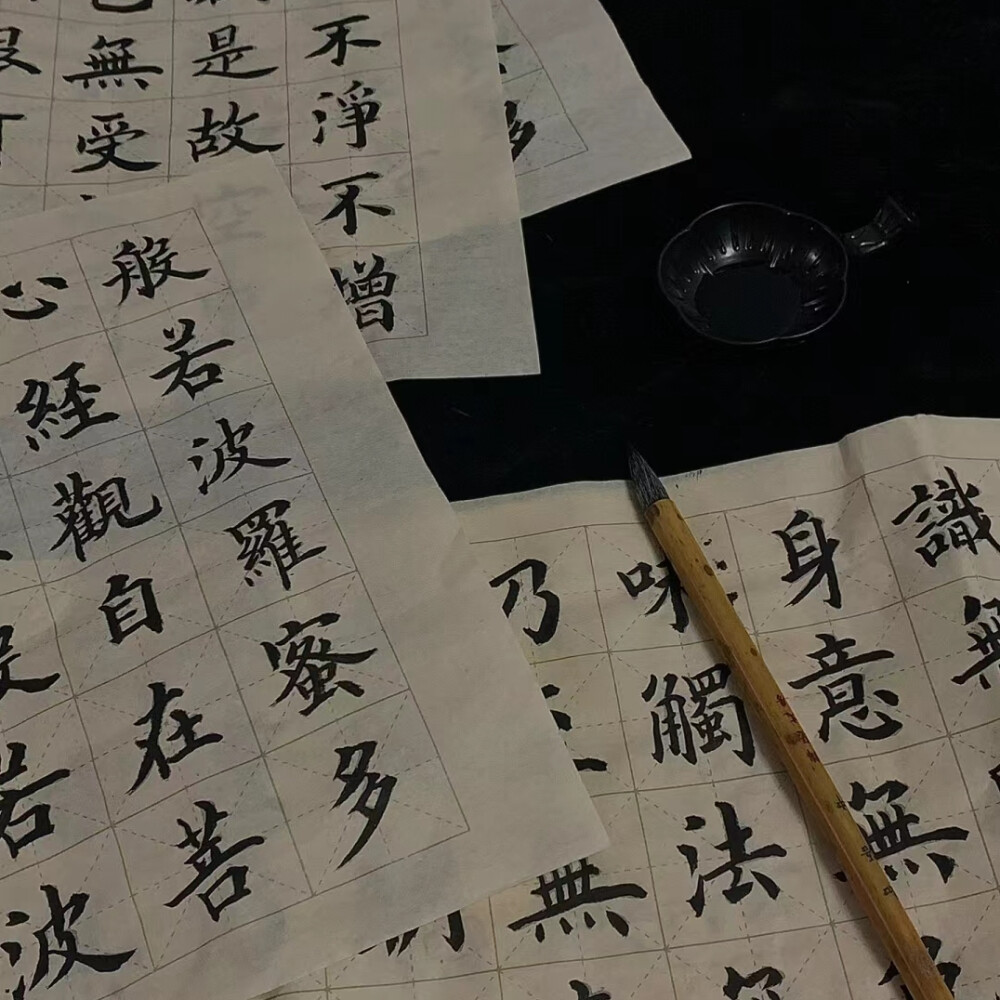 般若波羅蜜多
心經觀自在菩
若波
不淨不增
是故
無受
多
識無
身意無
味觸法
乃
無